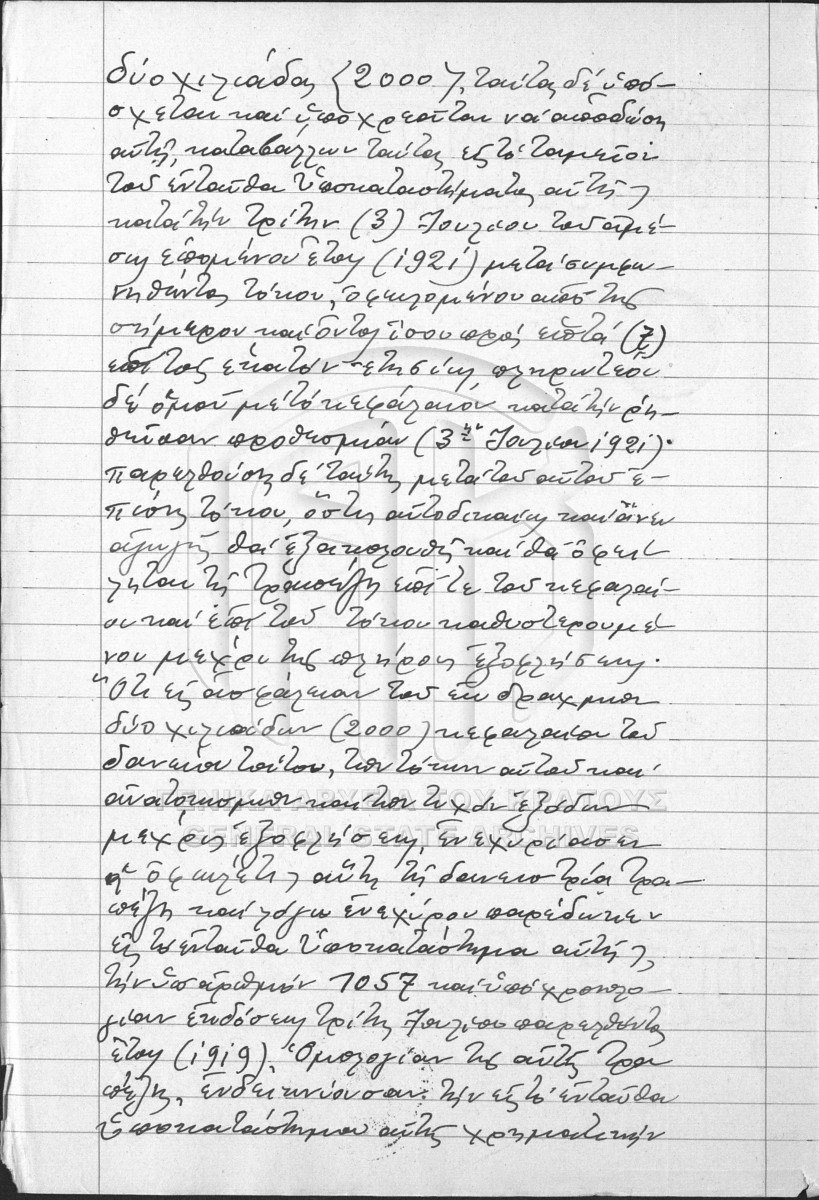 δύο χιλιάδας (2000), ταύτας δέ ὑπό-
σχεται καί ὑποχρεοῦται νά ἀποδώσῃ
αὐτῇ, καταβάλλων ταύτας εἰς τό ταμεῖον
τοῦ ἐνταῦθα Ὑποκαταστήματος αὐτῆς,
κατά τήν τρίτην (3) Ἰουλίου τοῦ ἀμέ-
σως ἑπομένου ἔτους (1921) μετά συμφω-
νηθέντος τόκου, ὀφειλομένου ἀπό τῆς
σήμερον καί ὄντος ἴσου πρός ἑπτά (7)
ἐπί τοῖς ἑκατόν ἐτησίως, πληρωτέου
δέ ὁμοῦ μέ τό κεφάλαιον κατά τήν ῥη-
θεῖσαν προθεσμίαν (3ην Ἰουλίου 1921)·
παρελθούσης δέ ταύτης μετά τοῦ αὐτοῦ ἐ-
πίσης τόκου, ὅστις αὐτοδικαίως καί ἄνευ
ἀγωγῆς θά ἐξακολουθῇ καί θά ὀφεί-
ληται τῇ Τραπέζῃ ἐπί τε τοῦ κεφαλαί-
ου καί ἐπί τοῦ τόκου καθυστερουμέ-
νου μέχρι τῆς πλήρους ἐξοφλήσεως.
Ὅτι εἰς ἀσφάλειαν τοῦ ἐκ δραχμῶν
δύο χιλιάδων (2000) κεφαλαίου τοῦ
δανείου τούτου, τῶν τόκων αὐτοῦ καί
ἀνατοκισμῶν καί τῶν τυχόν ἐξόδων
μέχρις ἐξοφλήσεως, ἐνεχυρίασεν
ὁ ὀφειλέτης αὐτῆς τῇ δανειστρίᾳ Τρα-
πέζῃ καί λόγῳ ἐνεχύρου παρέδωκεν
εἰς τό ἐνταῦθα Ὑποκατάστημα αὐτῆς,
τήν ὑπ' ἀριθμόν 1057 καί ὑπό χρονολο-
γίαν ἐκδόσεως τρίτης Ἰουλίου παρελθόντος
ἔτους (1919), Ὁμολογίαν τῆς αὐτῆς Τρα
πέζης, ἐνδεικνύουσαν τήν εἰς τό ἐνταῦθα
Ὑποκατάστημα αὐτῆς χρηματικήν
ΓΕΝΙΚΑ ΑΡΧΕΙΑ ΤΟΥ ΚΡΑΤΟΥΣ
GENERAL STATE ARCHIVES